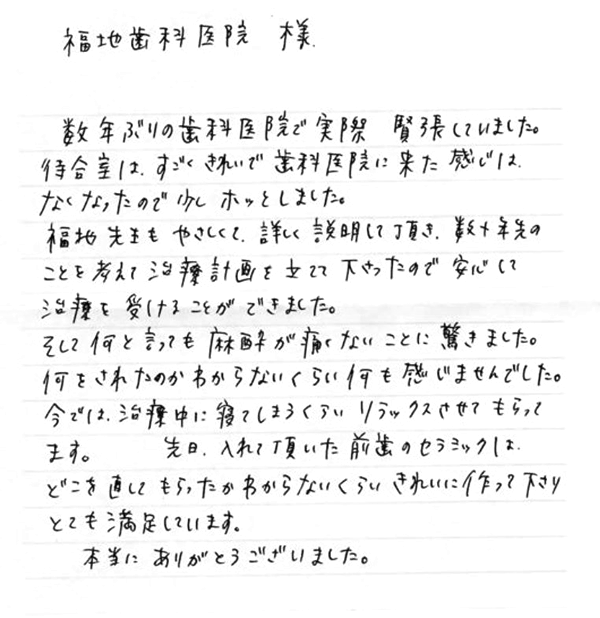 福地歯科医院 様.
数年ぶりの歯科医院で実際 緊張していました。
待合室は、すごくきれいで歯科医院に来た感じは、
なくなったので少しホッとしました。
福地先生もやさしくて、詳しく説明して頂き、数十年先の
ことを考えて治療計画を立てて下さったので安心して
治療を受けることができました。
そして何と言っても麻酔が痛くないことに驚きました。
何をされたのかわからないくらい何も感じませんでした。
今では、治療中に寝てしまうくらいリラックスさせてもらって
ます。 先日、入れて頂いた前歯のセラミックは、
どこを直してもらったかわからないくらいきれいに作って下さり
とても満足しています。
本当にありがとうございました。